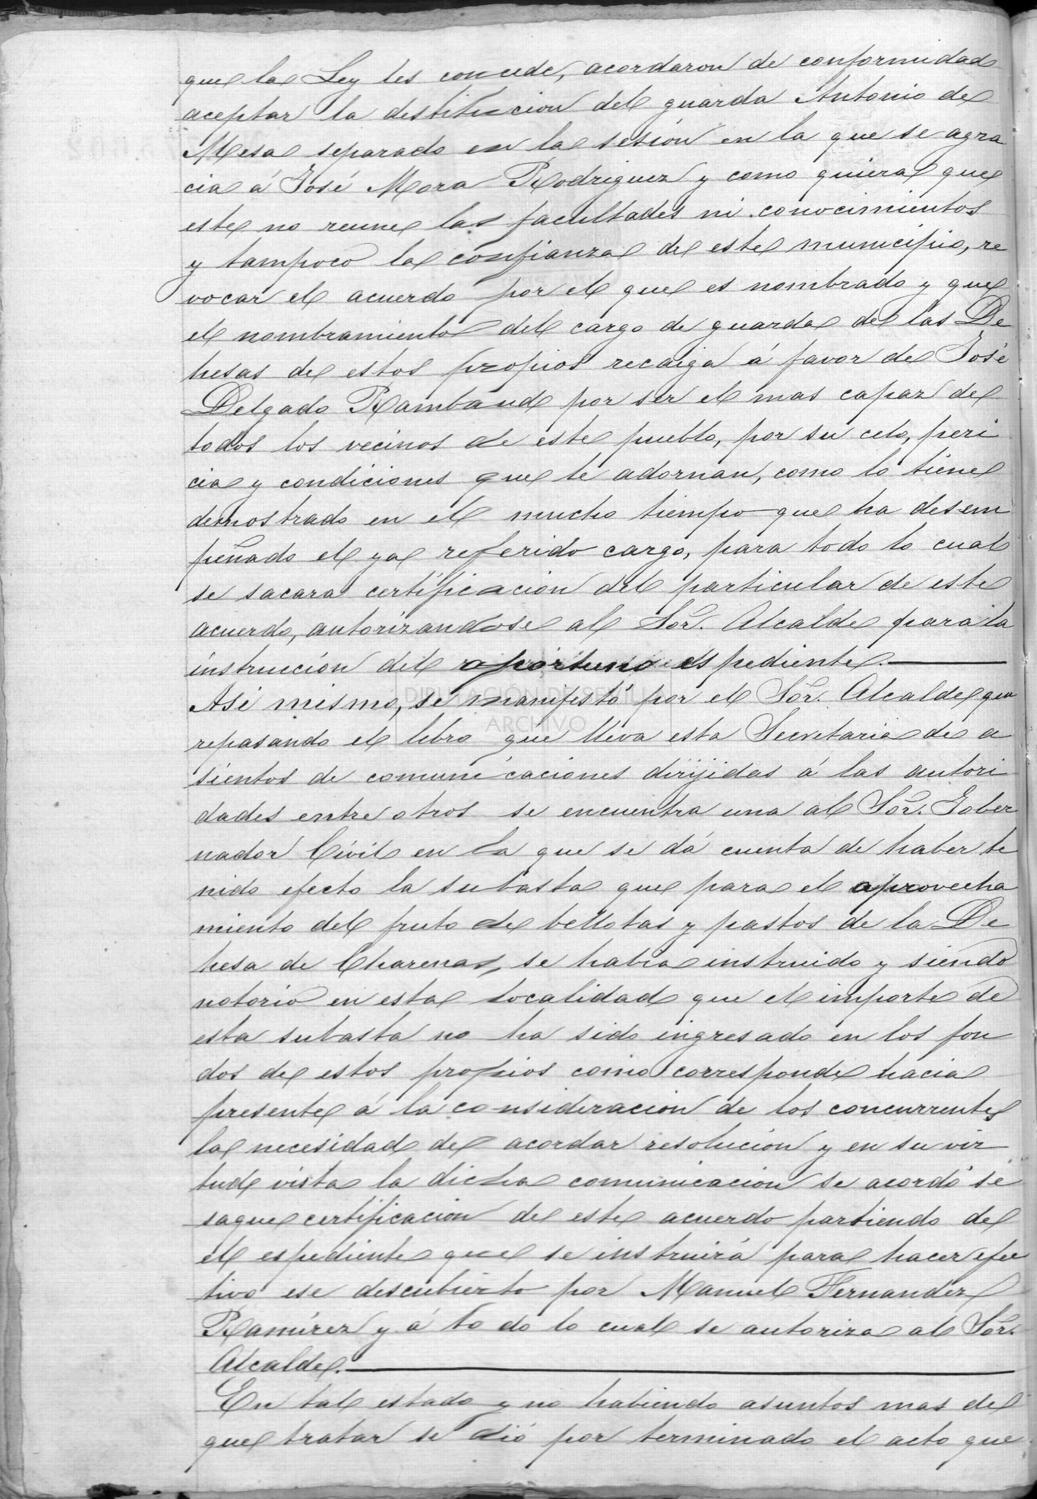 que la Ley les concede, acordaron de conformidad
aceptar la destitucion del guarda Antonio de
Mesa separado en la sesión en la que se agra
cia á José Mora Rodriguez y como quiera que
este no reune las facultades ni conocimientos
y tampoco la confianza de este municipio, re
vocar el acuerdo por el que es nombrado y que
el nombramiento del cargo de guarda de las De
hesas de estos propios recaiga á favor de José
Delgado Rambaud por ser el mas capaz de
todos los vecinos de este pueblo, por su celo, peri
cia y condiciones que le adornan, como lo tiene
demostrado en el mucho tiempo que ha desem
peñado el ya referido cargo, para todo lo cual
se sacara certificacion del particular de este
acuerdo, autorizandose al Sor. Alcalde para la
instrucción del oportuno espediente.
Asi mismo, se manifestó por el Sor. Alcalde que
DIPUTACIÓN DE SEVILLA
ARCHIVO
repasando el libro que lleva esta Secretaria de a
sientos de comunicaciones dirijidas á las autori
dades entre otros se encuentra una al Sor. Gober
nador Civil en la que se dá cuenta de haber te
nido efecto la subasta que para el aprovecha
miento del fruto de bellotas y pastos de la De
hesa de Charenas, se habia instruido y siendo
notorio en esta localidad que el importe de
esta subasta no ha sido ingresado en los fon
dos de estos propios como corresponde hacia
presente á la consideracion de los concurrentes
la necesidad de acordar resolución y en su vir
tud vista la dicha comunicacion se acordó se
saque certificacion de este acuerdo partiendo de
el espediente que se instruirá para hacer efec
tivo ese descubierto por Manuel Fernandez
Ramírez y á todo lo cual se autoriza al Sor.
Alcalde.
En tal estado y no habiendo asuntos mas de
que tratar se dió por terminado el acto que